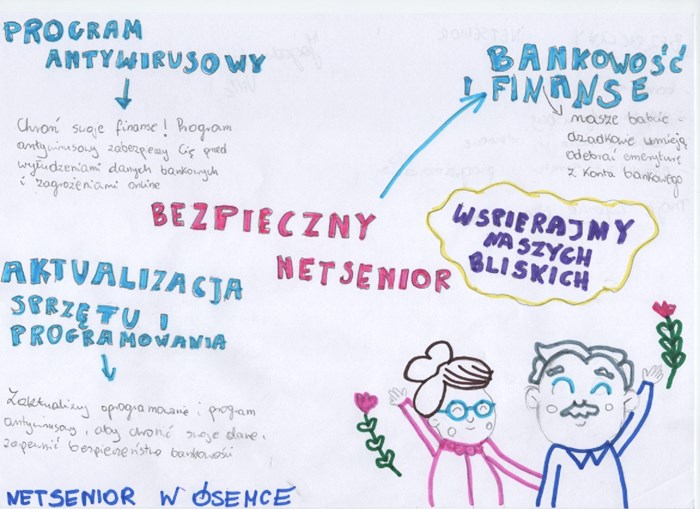 PROGRAM
ANTYWIRUSOWY
Chroń swoje finanse! Program
antywirusowy zabezpieczy Cię przed
wyłudzeniami danych bankowych
i zagrożeniami online
BANKOWOŚĆ
I FINANSE
nasze babcie -
dziadkowie umieją
odebrać emeryturę
z konta bankowego
BEZPIECZNY
NETSENIOR
WSPIERAJMY
NASZYCH
BLISKICH
AKTUALIZACJA
SPRZĘTU I
PROGRAMOWANIA
Zaktualizuj oprogramowanie i program
antywirusowy, aby chronić swoje dane.
zapewnić bezpieczeństwo bankowości
NETSENIOR W ÓSEMCE